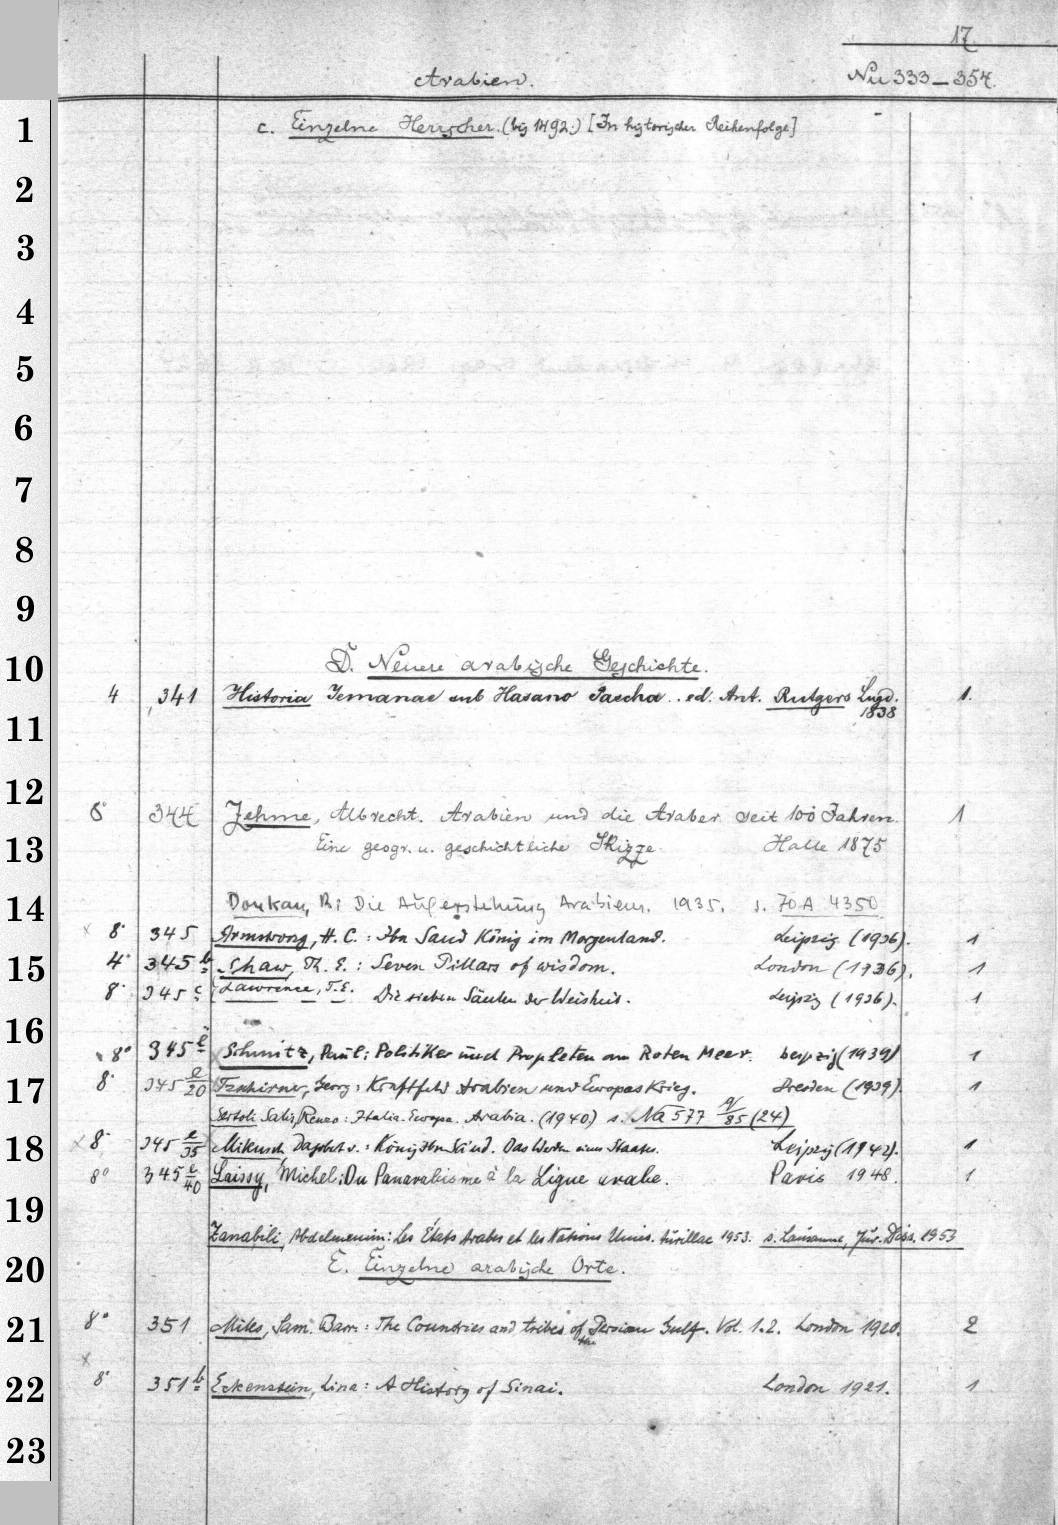 17
Arabien. Nu 333-354.
c. Einzelne Herrscher. (bis 1492.) [In historischer Reihenfolge]
D. Neuere arabische Geschichte.
4 341 Historia Jemanae sub Hasano Pascha .. ed. Ant. Rutgers Lugd. 1.
1838
8° 344 Zehme, Albrecht. Arabien und die Araber seit 100 Jahren. 1
Eine geogr. u. geschichtliche Skizze. Halle 1875
Donkan, R: Die Auferstehung Arabiens. 1935. s. 70 A 4350
x 8° 345 Armstrong, H. C.: Ibn Saud König im Morgenland. Leipzig (1936). 1
4° 345 b Shaw, Th. E.: Seven Pillars of wisdom. London (1936). 1
8° 345 c Lawrence, T.E. Die sieben Säulen der Weisheit. Leipzig (1936). 1
8° 345 e Schmitz, Paul: Politiker und Propheten am Roten Meer. Leipzig (1939) 1
8° 345 e/20 Tzschirner, Georg: Kraftfeld Arabien und Europas Krieg. Dresden (1939). 1
Sertoli Salis, Renzo: Italia. Europa. Arabia. (1940) s. Na 577 9/85 (24)
x 8° 345 e/35 Mikusch, Dagobert v.: König Ibn Sa'ud. Das Werden eines Staates. Leipzig (1942). 1
8° 345 e/40 Laissy, Michel: Du Panarabisme à la Ligue arabe. Paris 1948. 1
Zanabili, Abdelmenim: Les États Arabes et les Nations Unies. 1953. s. Lausanne, Jur. Diss. 1953
E. Einzelne arabische Orte.
8° 351 Miles, Sam. Barr.: The Countries and tribes of the Persian Gulf. Vol. 1.2. London 1920. 2
x
8° 351 b Eckenstein, Lina: A History of Sinai. London 1921. 1
1
2
3
4
5
6
7
8
9
10
11
12
13
14
15
16
17
18
19
20
21
22
23